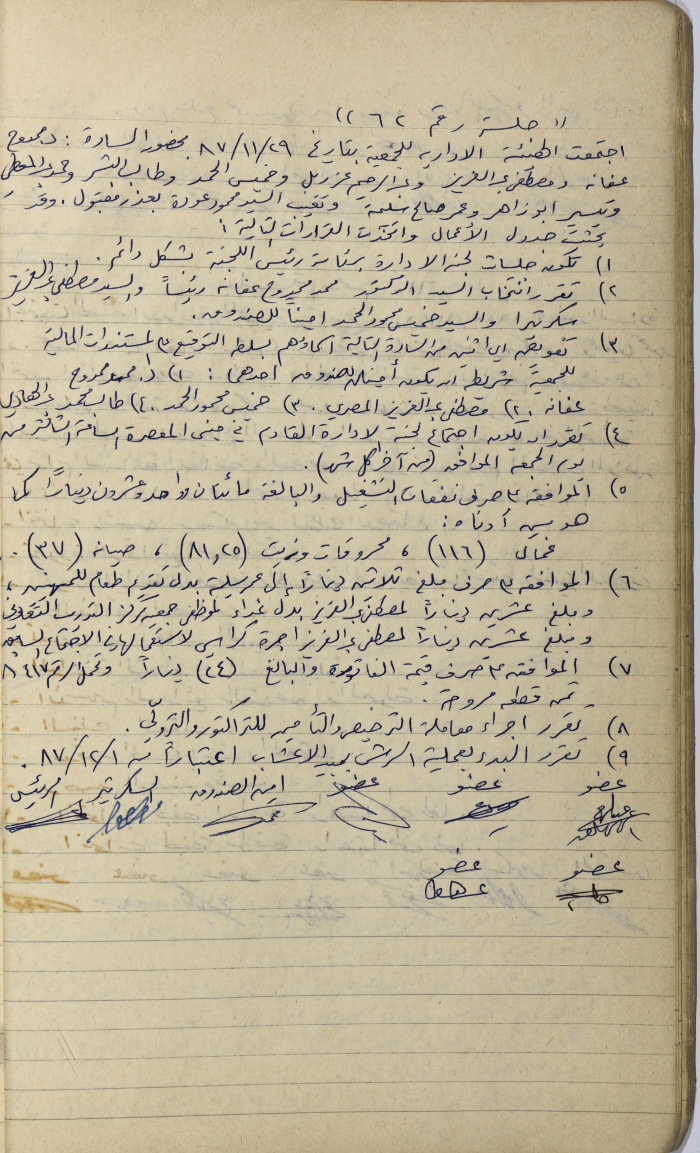 (( جلسة رقم ٢٦٢ ))
اجتمعت الهيئة الادارية للجمعية بتاريخ ٨٧/١١/٢٩ بحضور السادة : د. ممدوح
عفانه ومصطفى عبد العزيز وعبد الرحيم عزريل وخميس الحمد وطالب البشر وحمد
وتيسير ابو زاهر وعمر صالح سليمة وتغيب السيد محمود عودة بعذر مقبول . وقد
بحثت جدول الأعمال واتخذت القرارات التالية :
١) تكون جلسات لجنة الادارة برئاسة رئيس اللجنة بشكل دائم .
٢) تقرر انتخاب السيد الدكتور محمد ممدوح عفانه رئيساً والسيد مصطفى عبد العزيز
سكرتيرا والسيد خميس محمود الحمد اميناً للصندوق .
٣) تفويض اي اثنين من السادة التالية اسماؤهم بسلطة التوقيع على المستندات المالية
للجمعية شريطة ان يكون أمينا للصندوق احدهما : ١) د. محمد ممدوح
عفانه . ٢) مصطفى عبد العزيز المصري . ٣) خميس محمود الحمد . ٤) طالب محمد عبد الهادي
٤) تقرر ان يكون اجتماع لجنة الادارة القادم في مبنى المعصرة الساعة الثانية من
يوم الجمعة الموافق (من آخر كل شهر) .
٥) الموافقة على صرف نفقات التشغيل والبالغة مائتان وواحد وعشرون ديناراً كما
هو مبين أدناه :
عمال (١١٦) ، محروقات وزيت (٨١,٢٥) ، صيانه (٣٧) .
٦) الموافقة على صرف مبلغ ثلاثين ديناراً الى عمر سليمة بدل تقديم طعام للمهندسين ،
ومبلغ عشرين ديناراً لمصطفى عبد العزيز بدل غداء لموظفي جمعية مركز التدريب التعاوني
ومبلغ عشرين ديناراً لمصطفى عبد العزيز اجرة كراسي لاستعمالها في الاجتماع السنوي
٧) الموافقة على صرف قيمة الفاتورة والبالغ (٢٤) ديناراً وتحمل الرقم ٨٤١٧
ثمن قطعه مروحة .
٨) تقرر اجراء معاملة الترخيص والتأمين للتراكتور والترولّي .
٩) تقرر البدء بعملية الرش بمبيد الاعشاب اعتباراً من ٨٧/١٢/١ .
عضو عضو عضو امين الصندوق السكرتير الرئيس
عضو عضو